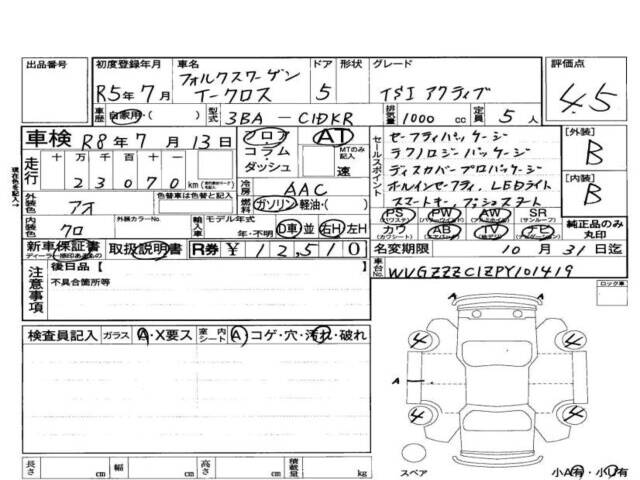 出品番号 初度登録年月 車名 ドア 形状 グレード 評価点
R5年7月 フォルクスワーゲン
T-クロス 5 TSI アクティブ 4.5
車歴 自家用・( ) 型式 3BA-C1DKR 排気量 1000 cc 定員 5人
車検 R8年7月13日 フロア AT
コラム・ダッシュ MTのみ記入 速
走行 十 万 千 百 十 一
2 3 0 7 0 km
冷房 AAC
外装色 アオ 色替車は元色 色替車は色替 燃料 ガソリン・軽油・( )
内装色 クロ 外装カラーNo. 輸入車 モデル年式
年・不明 D車 並 右H 左H
セールスポイント
セーフティパッケージ
テクノロジーパッケージ
ディスカバープロパッケージ
オールインセーフティ、LEDライト
スマートキー、プッシュスタート
PS PW AW SR
カワ AB TV ナビ
純正品のみ丸印
[外装] B
[内装] B
新車保証書 取扱説明書 R券 ¥12,510
名変期限 10月31日迄
車台No. WVGZZZC1ZPY101419
現在色を記入→
注意事項 後日品【
不具合箇所等
ロック車
検査員記入 ガラス A・X要ス 室内シート A コゲ・穴・汚れ・破れ
4 4
A
4 4
スペア 小A有・小U有
長さ cm 幅 cm 高さ cm 積載量 kg